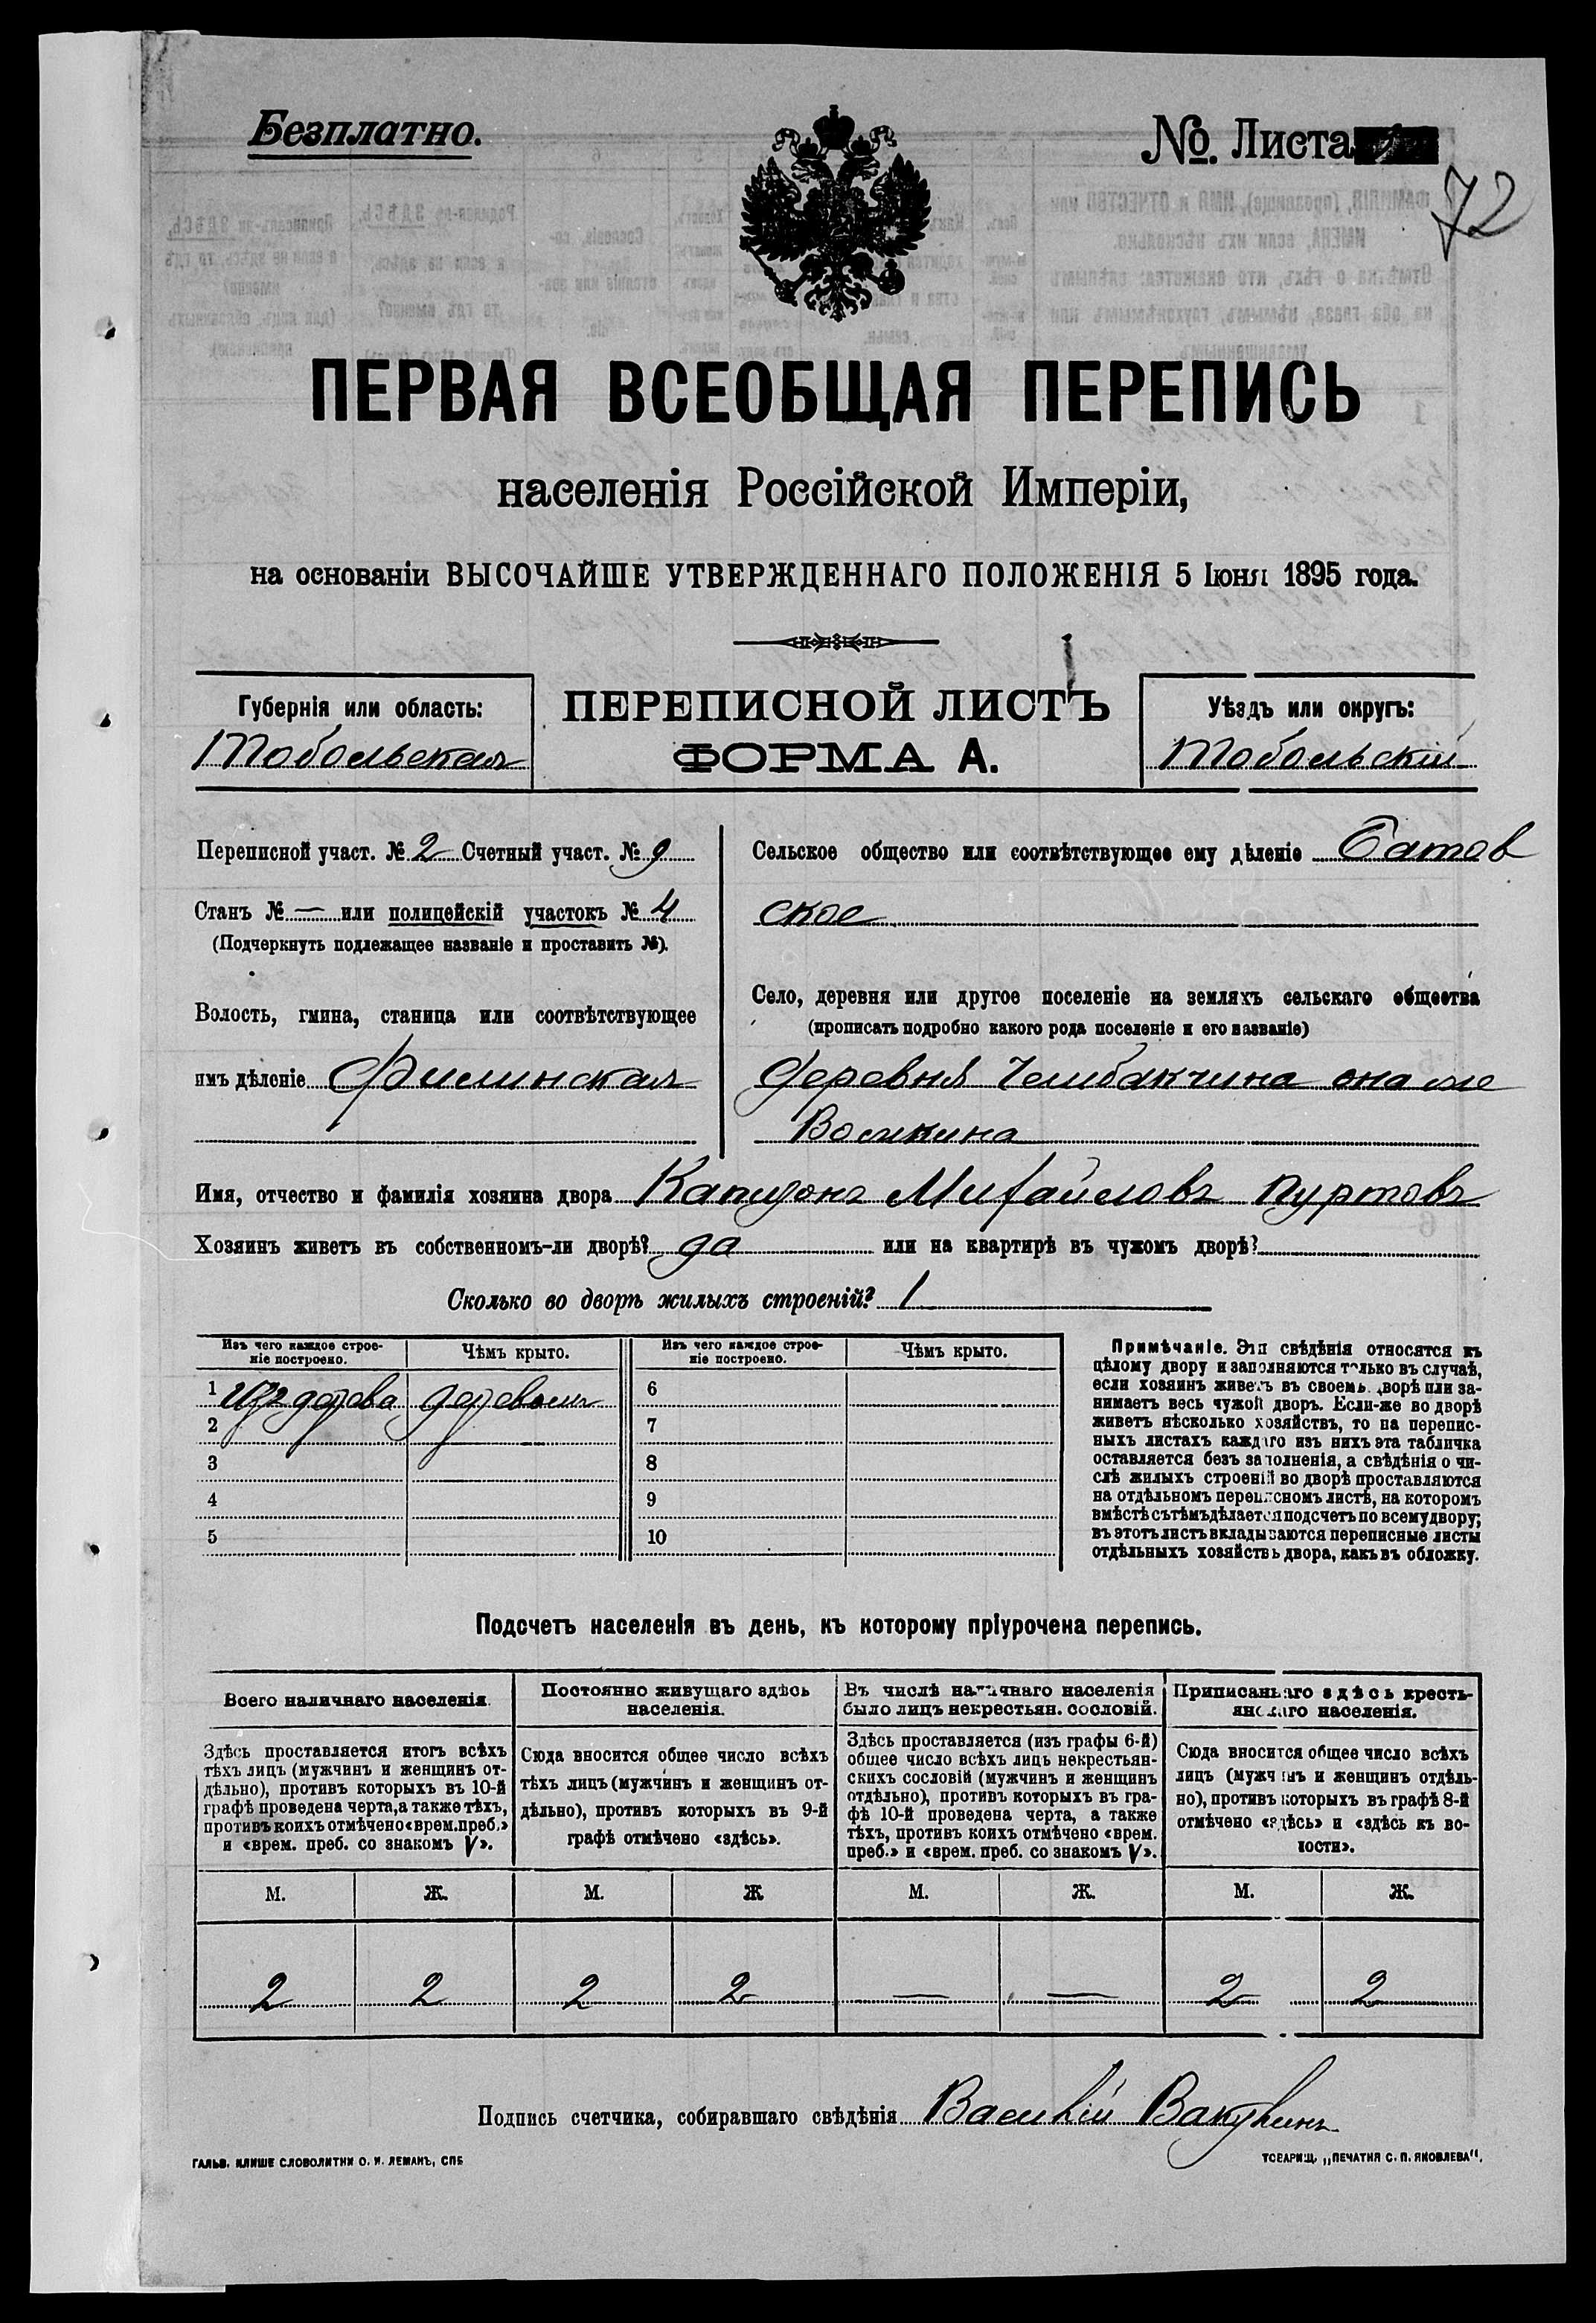 Безплатно.
№. Листа
72
ПЕРВАЯ ВСЕОБЩАЯ ПЕРЕПИСЬ
населенія Россійской Имперіи,
на основаніи ВЫСОЧАЙШЕ УТВЕРЖДЕННАГО ПОЛОЖЕНІЯ 5 Іюня 1895 года.
Губернія или область:
Тобольская
ПЕРЕПИСНОЙ ЛИСТЪ
ФОРМА А.
Уѣздъ или округъ:
Тобольскій
Переписной участ. № 2 Счетный участ. № 9
Станъ № — или полицейскій участокъ № 4
(Подчеркнуть подлежащее названіе и проставить №).
Волость, гмина, станица или соотвѣтствующее
имъ дѣленіе Филинская
Сельское общество или соотвѣтствующее ему дѣленіе Батов
ское
Село, деревня или другое поселеніе на земляхъ сельскаго общества
(прописать подробно какого рода поселеніе и его названіе)
Деревня Чембакчина она же
Имя, отчество и фамилія хозяина двора Капитонъ Михайловъ Пуртовъ
Хозяинъ живетъ въ собственномъ-ли дворѣ? да или на квартирѣ въ чужомъ дворѣ?
Сколько во дворѣ жилыхъ строеній? 1
Изъ чего каждое строе-
ніе построено.
Чѣмъ крыто.
Изъ чего каждое строе-
ніе построено.
Чѣмъ крыто.
1 изъ дерева деревомъ 6
2 7
3 8
4 9
5 10
Примѣчаніе. Эти свѣдѣнія относятся къ
цѣлому двору и заполняются только въ случаѣ,
если хозяинъ живетъ въ своемъ дворѣ или за-
нимаетъ весь чужой дворъ. Если-же во дворѣ
живетъ нѣсколько хозяйствъ, то на перепис-
ныхъ листахъ каждаго изъ нихъ эта табличка
оставляется безъ заполненія, а свѣдѣнія о чи-
слѣ жилыхъ строеній во дворѣ проставляются
на отдѣльномъ переписномъ листѣ, на которомъ
вмѣстѣ съ тѣмъ дѣлается подсчетъ по всему двору;
въ этотъ листъ вкладываются переписные листы
отдѣльныхъ хозяйствъ двора, какъ въ обложку.
Подсчетъ населенія въ день, къ которому пріурочена перепись.
Всего наличнаго населенія.
Здѣсь проставляется итогъ всѣхъ
тѣхъ лицъ (мужчинъ и женщинъ от-
дѣльно), противъ которыхъ въ 10-й
графѣ проведена черта, а также тѣхъ,
противъ коихъ отмѣчено «врем. преб.»
и «врем. преб. со знакомъ V».
Постоянно живущаго здѣсь
населенія.
Сюда вносится общее число всѣхъ
тѣхъ лицъ (мужчинъ и женщинъ от-
дѣльно), противъ которыхъ въ 9-й
графѣ отмѣчено «здѣсь».
Въ числѣ наличнаго населенія
было лицъ некрестьян. сословій.
Здѣсь проставляется (изъ графы 6-й)
общее число всѣхъ лицъ некрестьян-
скихъ сословій (мужчинъ и женщинъ
отдѣльно), противъ которыхъ въ гра-
фѣ 10-й проведена черта, а также
тѣхъ, противъ коихъ отмѣчено «врем.
преб.» и «врем. преб. со знакомъ V».
Приписаннаго здѣсь кресть-
янскаго населенія.
Сюда вносится общее число всѣхъ
лицъ (мужчинъ и женщинъ отдѣль-
но), противъ которыхъ въ графѣ 8-й
отмѣчено «здѣсь» и «здѣсь къ во-
лости».
М. Ж. М. Ж М. Ж. М. Ж.
2 2 2 2 — — 2 2
Подпись счетчика, собиравшаго свѣдѣнія Василій
ГАЛЬВ. КЛИШЕ СЛОВОЛИТНИ О. И. ЛЕМАНЪ, СПБ
ТОВАРИЩ. „ПЕЧАТНЯ С. П. ЯКОВЛЕВА".